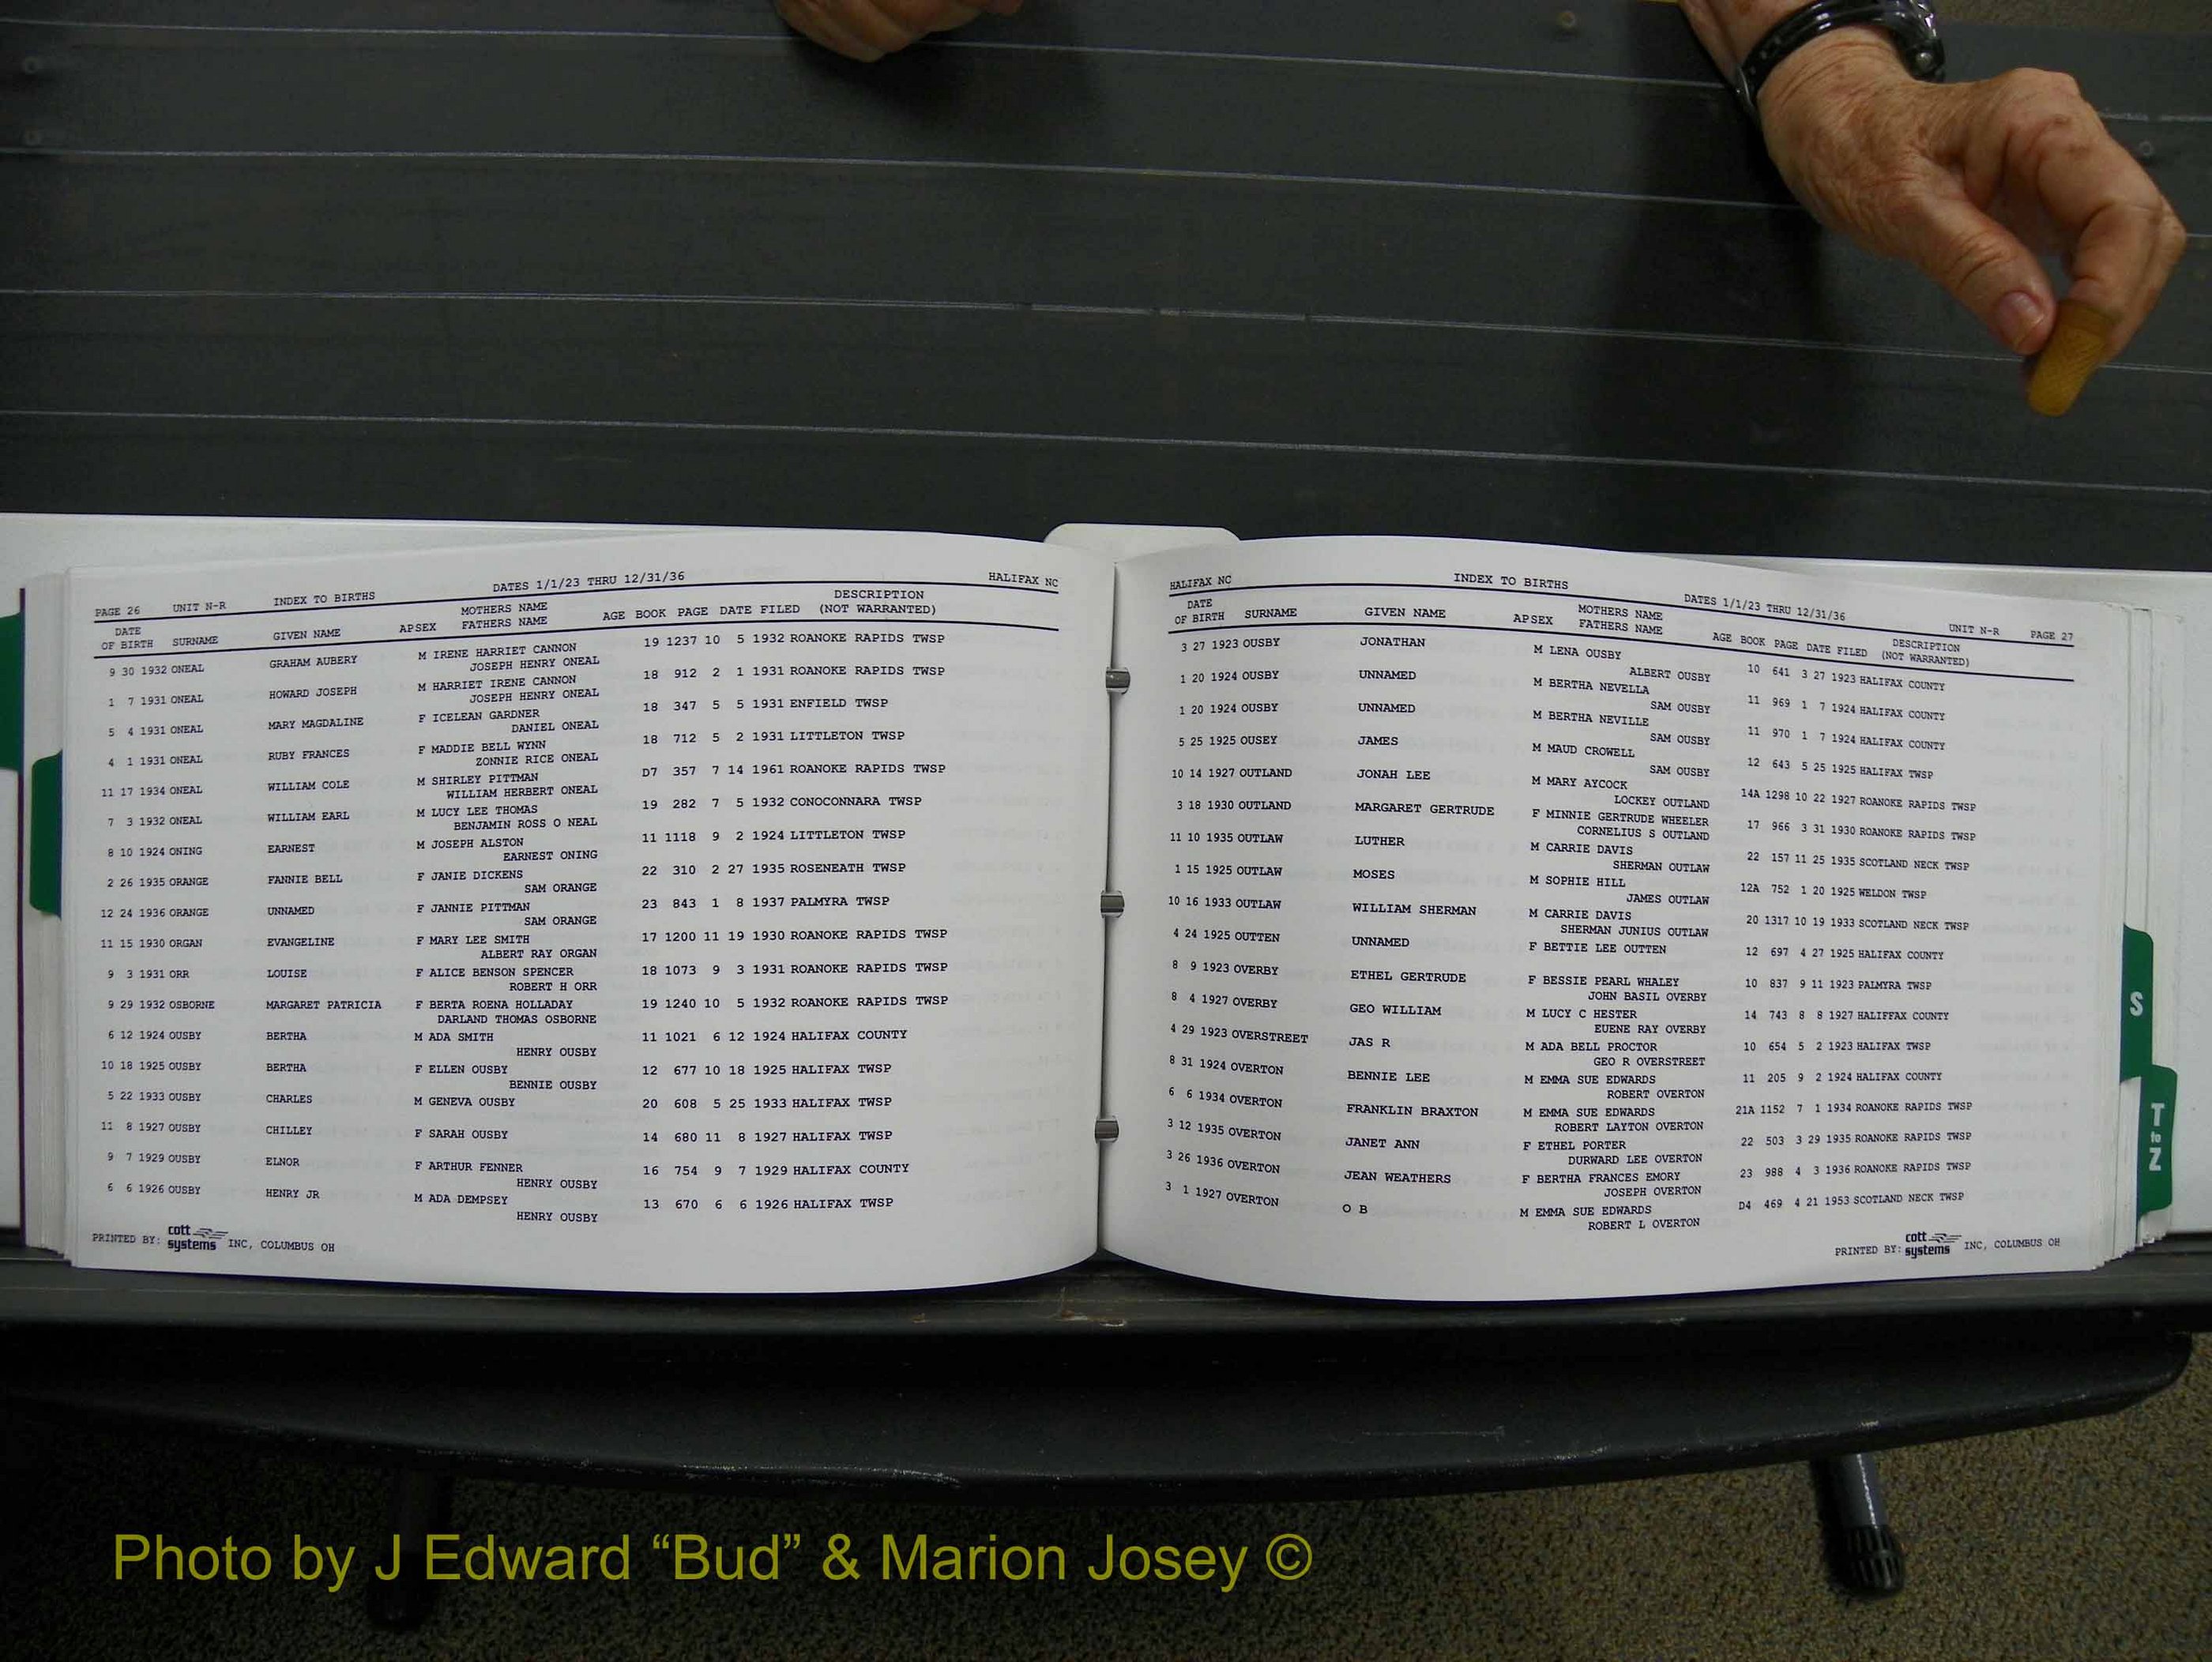 PAGE 26 UNIT N-R INDEX TO BIRTHS DATES 1/1/23 THRU 12/31/36 HALIFAX NC
DATE MOTHERS NAME DESCRIPTION
OF BIRTH SURNAME GIVEN NAME APSEX FATHERS NAME AGE BOOK PAGE DATE FILED (NOT WARRANTED)
9 30 1932 ONEAL GRAHAM AUBERY M IRENE HARRIET CANNON 19 1237 10 5 1932 ROANOKE RAPIDS TWSP
JOSEPH HENRY ONEAL
1 7 1931 ONEAL HOWARD JOSEPH M HARRIET IRENE CANNON 18 912 2 1 1931 ROANOKE RAPIDS TWSP
JOSEPH HENRY ONEAL
5 4 1931 ONEAL MARY MAGDALINE F ICELEAN GARDNER 18 347 5 5 1931 ENFIELD TWSP
DANIEL ONEAL
4 1 1931 ONEAL RUBY FRANCES F MADDIE BELL WYNN 18 712 5 2 1931 LITTLETON TWSP
ZONNIE RICE ONEAL
11 17 1934 ONEAL WILLIAM COLE M SHIRLEY PITTMAN D7 357 7 14 1961 ROANOKE RAPIDS TWSP
WILLIAM HERBERT ONEAL
7 3 1932 ONEAL WILLIAM EARL M LUCY LEE THOMAS 19 282 7 5 1932 CONOCONNARA TWSP
BENJAMIN ROSS O NEAL
8 10 1924 ONING EARNEST M JOSEPH ALSTON 11 1118 9 2 1924 LITTLETON TWSP
EARNEST ONING
2 26 1935 ORANGE FANNIE BELL F JANIE DICKENS 22 310 2 27 1935 ROSENEATH TWSP
SAM ORANGE
12 24 1936 ORANGE UNNAMED F JANNIE PITTMAN 23 843 1 8 1937 PALMYRA TWSP
SAM ORANGE
11 15 1930 ORGAN EVANGELINE F MARY LEE SMITH 17 1200 11 19 1930 ROANOKE RAPIDS TWSP
ALBERT RAY ORGAN
9 3 1931 ORR LOUISE F ALICE BENSON SPENCER 18 1073 9 3 1931 ROANOKE RAPIDS TWSP
ROBERT H ORR
9 29 1932 OSBORNE MARGARET PATRICIA F BERTA ROENA HOLLADAY 19 1240 10 5 1932 ROANOKE RAPIDS TWSP
DARLAND THOMAS OSBORNE
6 12 1924 OUSBY BERTHA M ADA SMITH 11 1021 6 12 1924 HALIFAX COUNTY
HENRY OUSBY
10 18 1925 OUSBY BERTHA F ELLEN OUSBY 12 677 10 18 1925 HALIFAX TWSP
BENNIE OUSBY
5 22 1933 OUSBY CHARLES M GENEVA OUSBY 20 608 5 25 1933 HALIFAX TWSP
11 8 1927 OUSBY CHILLEY F SARAH OUSBY 14 680 11 8 1927 HALIFAX TWSP
9 7 1929 OUSBY ELNOR F ARTHUR FENNER 16 754 9 7 1929 HALIFAX COUNTY
HENRY OUSBY
6 6 1926 OUSBY HENRY JR M ADA DEMPSEY 13 670 6 6 1926 HALIFAX TWSP
HENRY OUSBY
PRINTED BY: cott systems INC, COLUMBUS OH
HALIFAX NC INDEX TO BIRTHS DATES 1/1/23 THRU 12/31/36 UNIT N-R PAGE 27
DATE MOTHERS NAME DESCRIPTION
OF BIRTH SURNAME GIVEN NAME APSEX FATHERS NAME AGE BOOK PAGE DATE FILED (NOT WARRANTED)
3 27 1923 OUSBY JONATHAN M LENA OUSBY 10 641 3 27 1923 HALIFAX COUNTY
ALBERT OUSBY
1 20 1924 OUSBY UNNAMED M BERTHA NEVELLA 11 969 1 7 1924 HALIFAX COUNTY
SAM OUSBY
1 20 1924 OUSBY UNNAMED M BERTHA NEVILLE 11 970 1 7 1924 HALIFAX COUNTY
SAM OUSBY
5 25 1925 OUSEY JAMES M MAUD CROWELL 12 643 5 25 1925 HALIFAX TWSP
SAM OUSBY
10 14 1927 OUTLAND JONAH LEE M MARY AYCOCK 14A 1298 10 22 1927 ROANOKE RAPIDS TWSP
LOCKEY OUTLAND
3 18 1930 OUTLAND MARGARET GERTRUDE F MINNIE GERTRUDE WHEELER 17 966 3 31 1930 ROANOKE RAPIDS TWSP
CORNELIUS S OUTLAND
11 10 1935 OUTLAW LUTHER M CARRIE DAVIS 22 157 11 25 1935 SCOTLAND NECK TWSP
SHERMAN OUTLAW
1 15 1925 OUTLAW MOSES M SOPHIE HILL 12A 752 1 20 1925 WELDON TWSP
JAMES OUTLAW
10 16 1933 OUTLAW WILLIAM SHERMAN M CARRIE DAVIS 20 1317 10 19 1933 SCOTLAND NECK TWSP
SHERMAN JUNIUS OUTLAW
4 24 1925 OUTTEN UNNAMED F BETTIE LEE OUTTEN 12 697 4 27 1925 HALIFAX COUNTY
8 9 1923 OVERBY ETHEL GERTRUDE F BESSIE PEARL WHALEY 10 837 9 11 1923 PALMYRA TWSP
JOHN BASIL OVERBY
8 4 1927 OVERBY GEO WILLIAM M LUCY C HESTER 14 743 8 8 1927 HALIFFAX COUNTY
EUENE RAY OVERBY
4 29 1923 OVERSTREET JAS R M ADA BELL PROCTOR 10 654 5 2 1923 HALIFAX TWSP
GEO R OVERSTREET
8 31 1924 OVERTON BENNIE LEE M EMMA SUE EDWARDS 11 205 9 2 1924 HALIFAX COUNTY
ROBERT OVERTON
6 6 1934 OVERTON FRANKLIN BRAXTON M EMMA SUE EDWARDS 21A 1152 7 1 1934 ROANOKE RAPIDS TWSP
ROBERT LAYTON OVERTON
3 12 1935 OVERTON JANET ANN F ETHEL PORTER 22 503 3 29 1935 ROANOKE RAPIDS TWSP
DURWARD LEE OVERTON
3 26 1936 OVERTON JEAN WEATHERS F BERTHA FRANCES EMORY 23 988 4 3 1936 ROANOKE RAPIDS TWSP
JOSEPH OVERTON
3 1 1927 OVERTON O B M EMMA SUE EDWARDS D4 469 4 21 1953 SCOTLAND NECK TWSP
ROBERT L OVERTON
PRINTED BY: cott systems INC, COLUMBUS OH
S
T
to
Z
Photo by J Edward “Bud” & Marion Josey ©